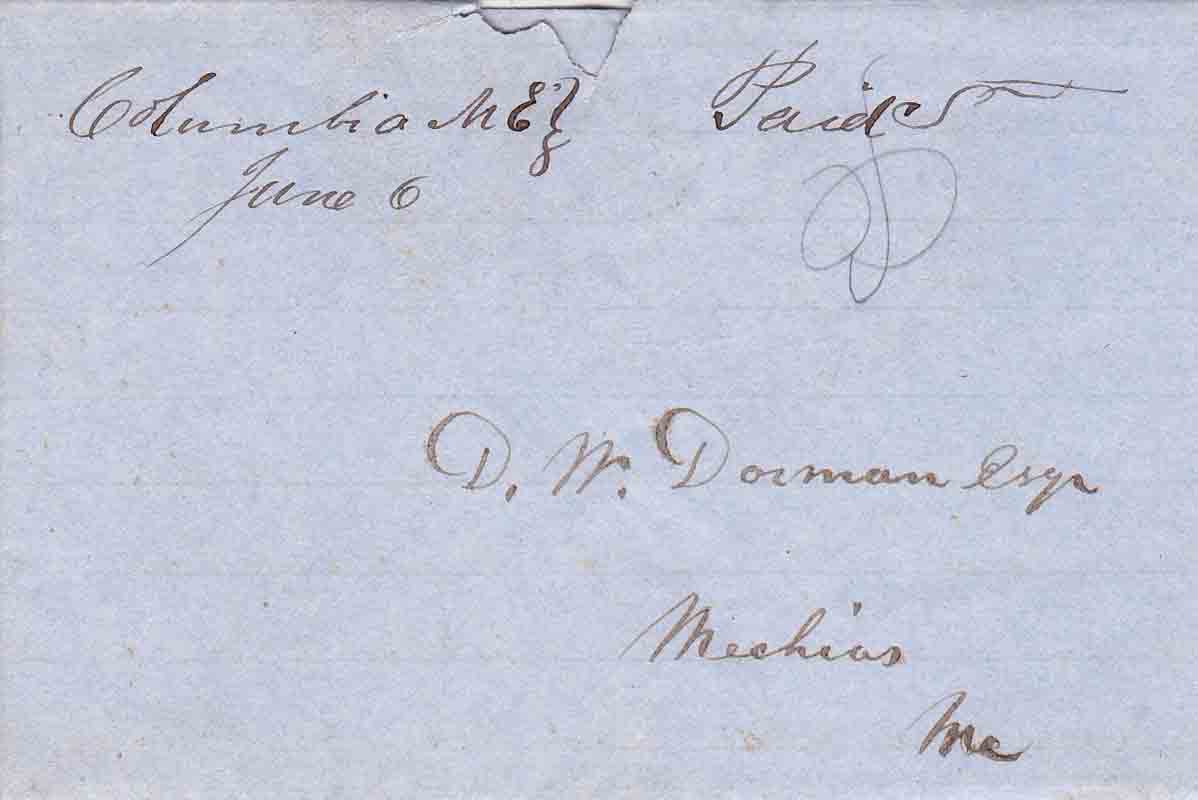 Columbia ME}
June 6
Paid 5
D. W. Dorman Esqr
Mechias
Me